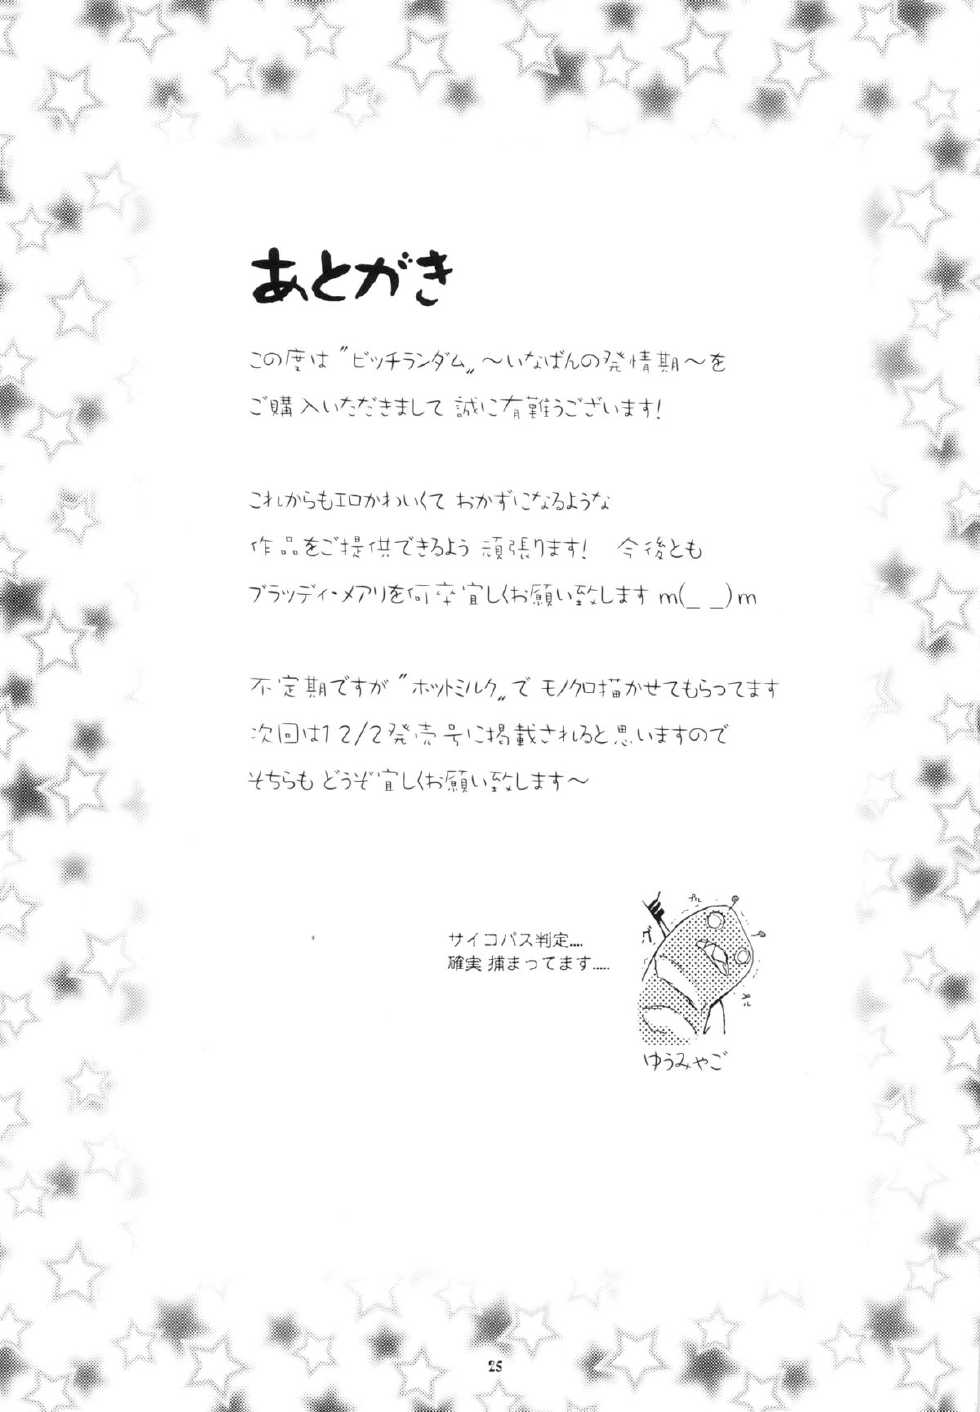 あとがき
この度は〝ビッチランダム〟〜いなばんの発情期〜を
ご購入いただきまして 誠に有難うございます!
これからもエロかわいくて おかずになるような
作品をご提供できるよう 頑張ります! 今後とも
ブラッディ・メアリを何卒宜しくお願い致します m(_ _)m
不定期ですが〝ホットミルク〟で モノクロ描かせてもらってます
次回は12/2発売号に掲載されると思いますので
そちらも どうぞ宜しくお願い致します〜
サイコパス判定....
確実 捕まってます.....
ゆうみやご
25